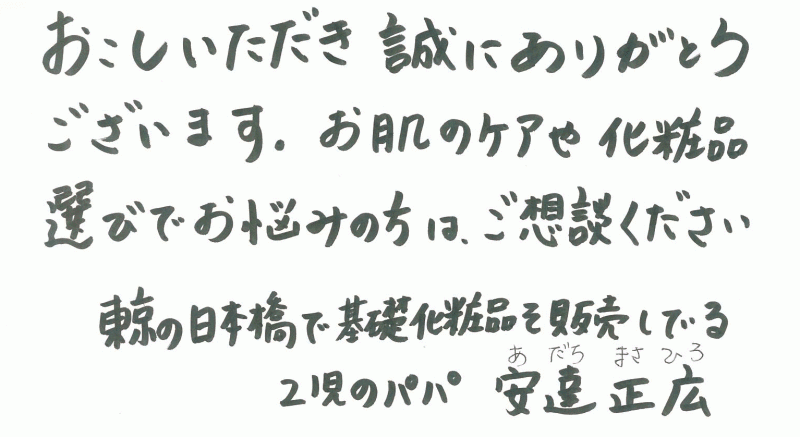 おこしいただき 誠にありがとう
ございます。お肌のケアや 化粧品
選びでお悩みのちは、ご想談ください
東京の日本橋で基礎化粧品を販売してる
あ だち まさ ひろ
2児のパパ 安達 正広